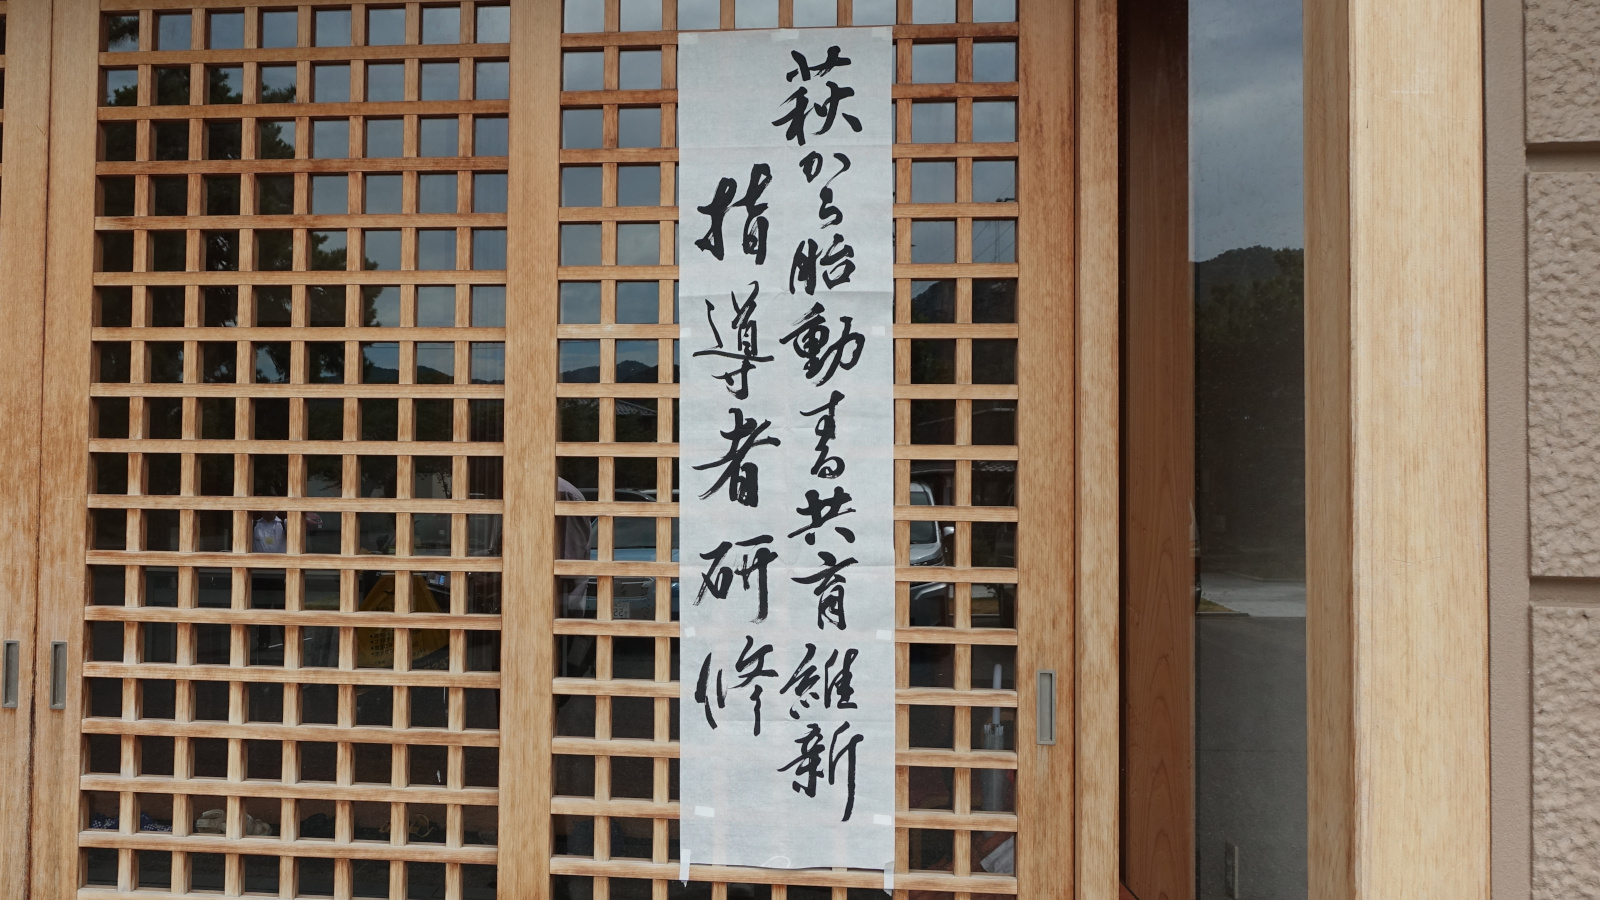 萩から胎動する共育維新
指導者研修